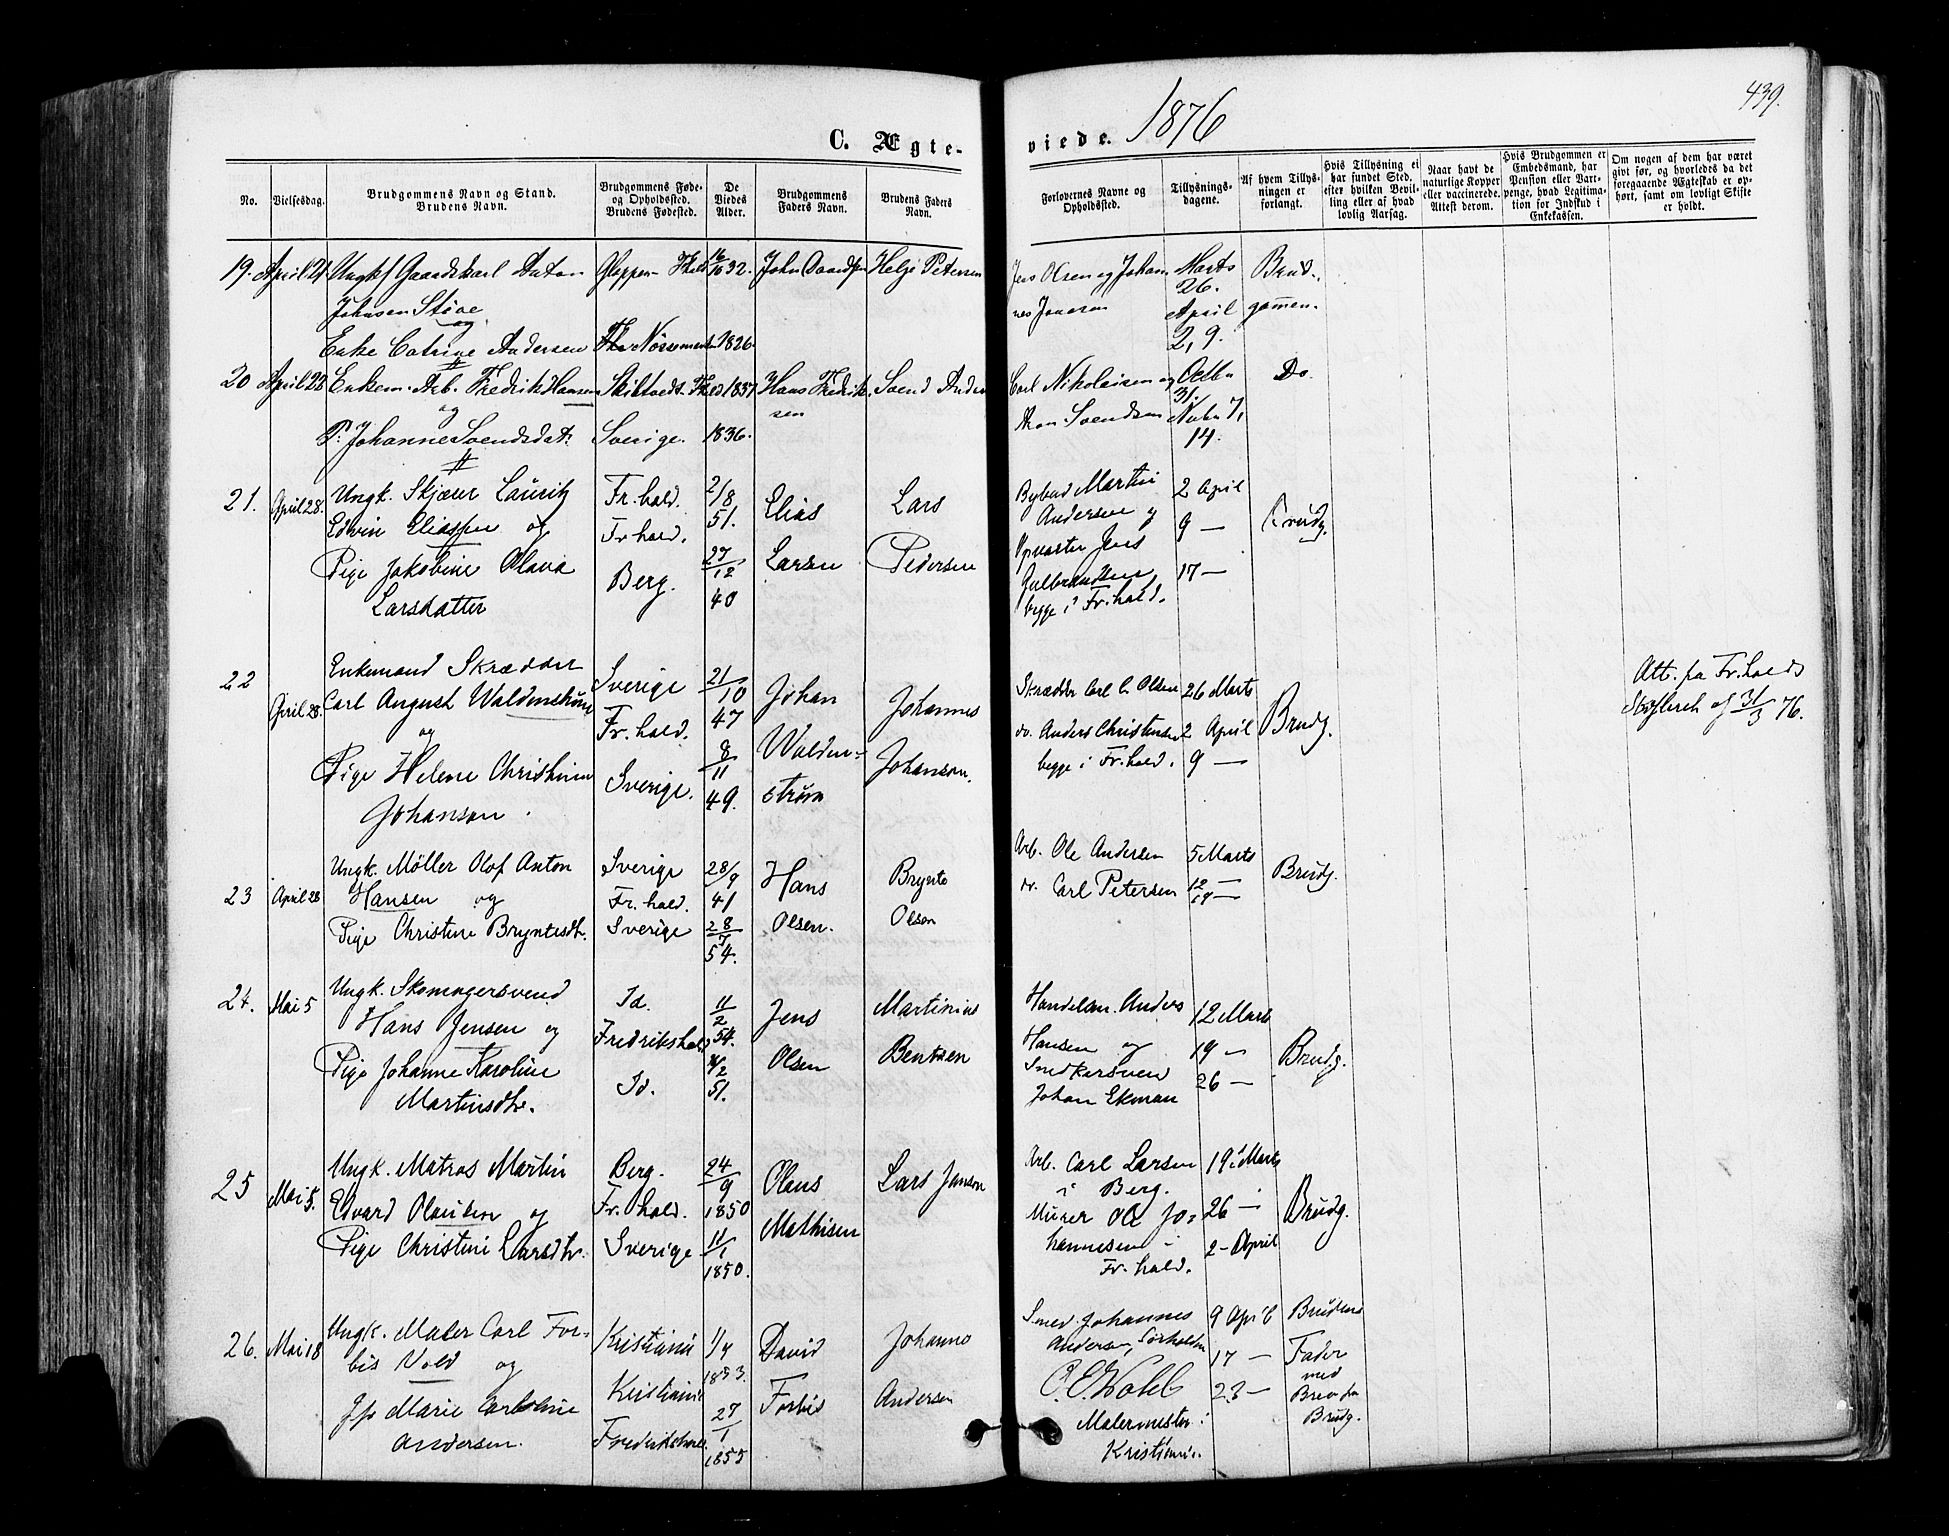 439.
C. Ægte-
viede. 1876
No.
Vielsesdag.
Brudgommens Navn og Stand.
Brudens Navn.
Brudgommens Føde-
og Opholdssted.
Brudens Fødested.
De
Viedes
Alder.
Brudgommens
Faders Navn.
Brudens Faders
Navn.
Forlovernes Navne og
Opholdssted.
Tillysnings-
dagene.
Af hvem Tillys-
ningen er
forlangt.
Hvis Tillysning ei
har fundet Sted,
efter hvilken Bevil-
ling eller af hvad
lovlig Aarsag.
Naar havt de
naturlige Kopper
eller vaccinerede.
Attest derom.
Hvis Brudgommen er
Embedsmand, har
Pension eller Vart-
penge, hvad Legitima-
tion for Indskud i
Enkekassen.
Om nogen af dem har været
givt før, og hvorledes da det
foregaaende Ægteskab er op-
hørt, samt om lovligt Skifte
er holdt.
19. April 21.
Ungkf Gaardskarl Anton
Johnsen Støae
og
Enke Catrine Andersen
16/10 32.
1826.
Helje Petersen
Jens Olsen og Johan
Marts
26.
April
2, 9.
Brud-
gommen.
20 April 22
Enkem. Arb. Fredrik Hansen
og
P. Johanne Svendsdat.
Sverige.
1837
1836.
Hans Fredrik-
sen
Svend Ander
Carl Nikolaisen og
Svendsen
Octbr
31.
Novbr 7,
14.
Do.
21. April 28.
Ungk. Skjærer Lauritz
Edvin Eliassen og
Pige Jakobine Olava
Larsdatter
Fr.hald.
Fr.hald.
Berg.
2/8
51.
27/12
40
Elias
Larsen
Lars
Pedersen
Bybud Martin
Andersen og
Opvarter Jens
Gulbrandsen
begge i Fr.hald.
2 April
9 —
17 —
Brudg.
22 April 28.
Enkemand Skrædder
Carl August Waldenstrøm
og
Pige Helene Christine
Johanson.
Sverige
Fr.hald.
Sverige.
21/10
47
8/11
49.
Johan
Walden-
strøm
Johannes
Johanson.
Skrædder Carl C. Olsen
do. Anders Christensen
begge i Fr.hald.
26 Marts
2 April
9 —
Brudg.
Att. fra Fr.halds
af 31/3 76.
23 April 28
Ungk. Møller Olof Anton
Hansen og
Pige Christine Bryntesdtr.
Sverige
Fr.hald.
Sverige
28/9
41
28/7
54.
Hans
Olsen.
Brynte
Olson
Arb. Ole Andersen
do. Carl Petersen
5 Marts
12 —
19 —
Brudg.
24. Mai 5
Ungk. Skomagersvend
Hans Jensen og
Pige Johanne Karoline
Martinsdtr.
Id.
Fredrikshald
Id.
11/2
54.
51.
Jens
Olsen
Martinius
Bentsen
Handelsm. Anders
Hansen og
Snedkersvend
Johan Ekman
12 Marts
19 —
26 —
Brudg.
25 Mai 5.
Ungk. Matros Martin
Edvard Olausen og
Pige Christine Larsdtr.
Berg.
Fr.hald.
Sverige
24/9
1850
11/1
1850.
Olaus
Mathisen
Lars Janson
Arb. Carl Larsen
i Berg.
Murer Ole Jo-
hannesen i
Fr.hald.
19 Marts
26 —
2 - April
Brudg.
26. Mai 18
Ungk. Maler Carl For-
bis Vold og
Jfr Marie Caroline
Andersen.
Kristiania
Kristiania
Fredrikshald.
1853.
27/1
1855
David
Forbis
Johannes
Andersen
Smed Johannes
Anderse,
Malermester
Kristiania.
9 April
17 —
23 —
Brudens
Fader
med
Brev fra
Brudg.